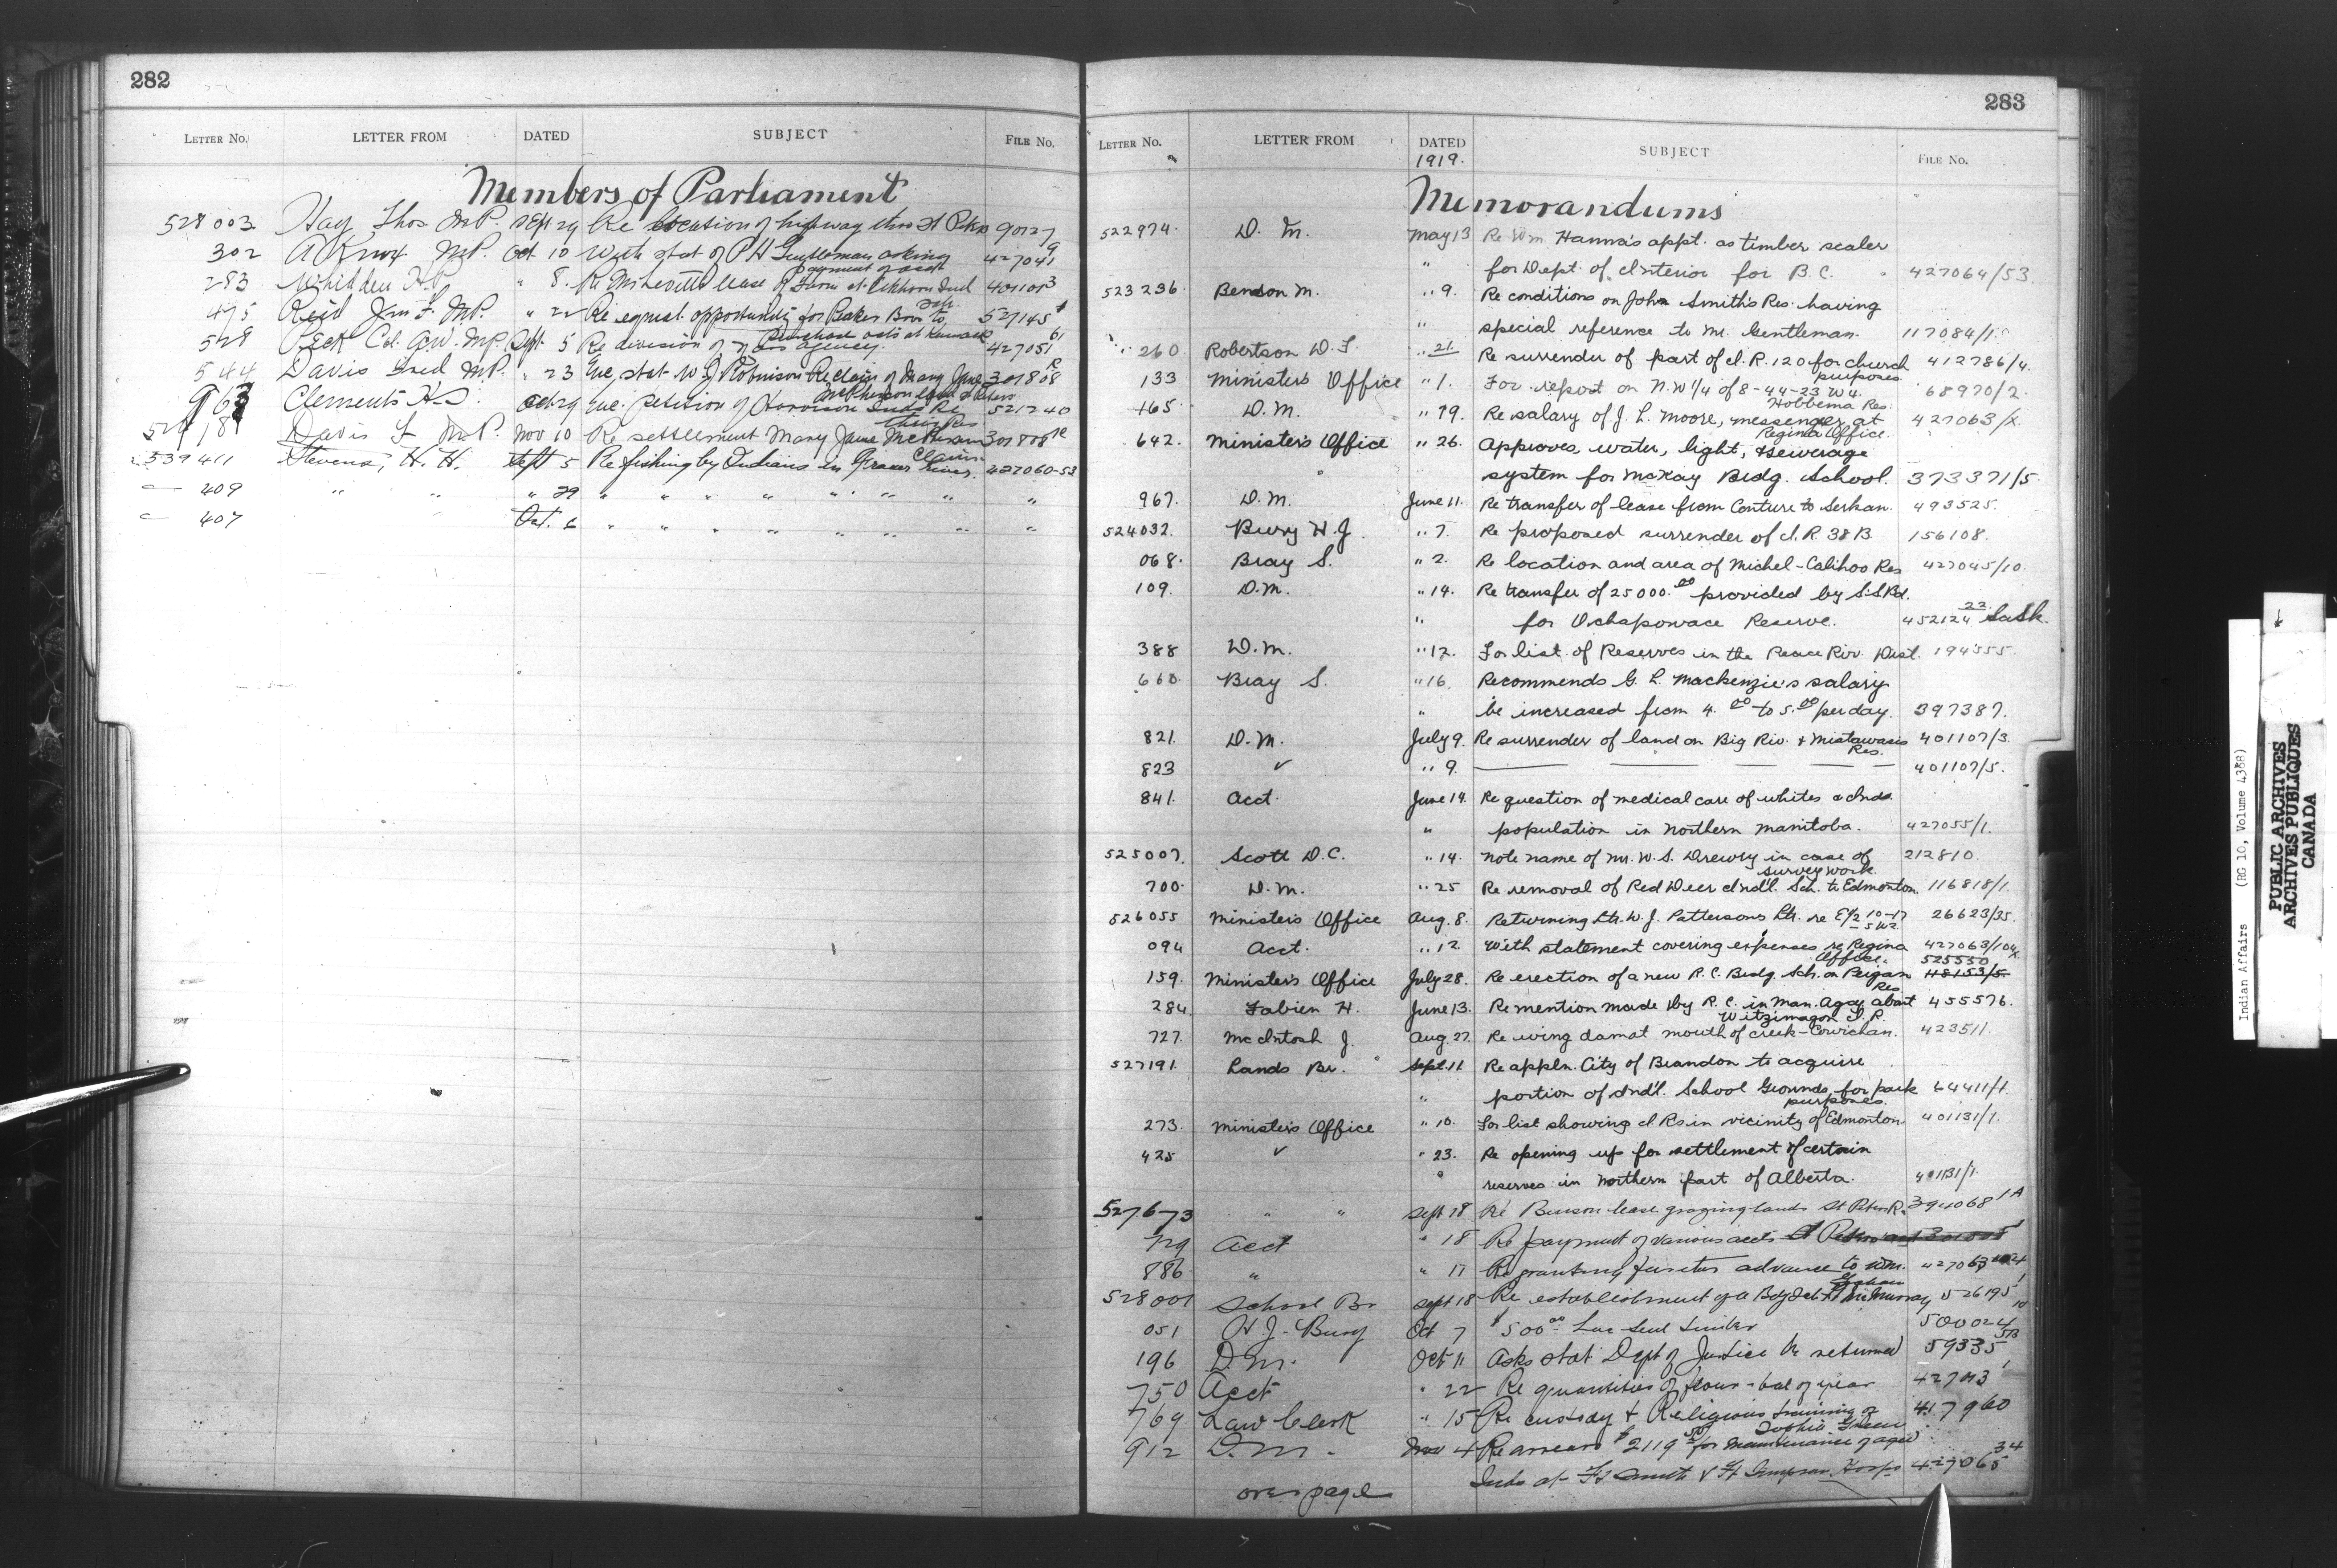 282
LETTER No. LETTER FROM DATED SUBJECT FILE No.
Members of Parliament
528003 Hay Thos M.P. Sept 29 Re location of highway thro St Peters 90127
302 A Knox M.P. Oct 10 With stat of P H Gentleman asking 427041 9
payment of acct
283 " 8. Re lease of Farm at Elkhorn Ind 401100 3
475 Reid Jno F. M.P. " 22 Re equal opportunity for Bros to 527145
528 Peck Col. C.W. M.P. Sept. 5 Re division of agency. 427051 61
544 Davis Fred M.P. " 23 Enc. stat W J Robinson Re claim of Mary Jane 301808
963 Clements H.S. Oct 29 Enc. Petition of Inds Re 521240
their Res
Davis F M.P. Nov 10 Re settlement Mary Jane McPherson 301808
Claim.
539411 Stevens, H. H. Sept 5 Re fishing by Indians in Fraser River. 427060-53
409 " " " 29 " " " " " " " " "
407 Oct. 6 " " " " " " " " "
283
LETTER No. LETTER FROM DATED SUBJECT FILE No.
1919.
Memorandums
522974. D. M. May 13 Re Wm Hanna's appt. as timber scaler
" for Dept. of Interior for B.C. 427064/53.
523236 Benson M. " 9. Re conditions on John Smith's Res. having
" special reference to Mr. Gentleman. 117084/1.
260 Robertson W. " 21. Re surrender of part of I.R. 120 for church 412786/4.
purposes
133 Minister's Office " 1. For report on N.W 1/4 of 8-44-23 W4. 68970/2.
Hobbema Res.
165 D.M. " 19. Re salary of J. L. Moore, messenger at 427063/2.
Regina Office.
642. Minister's Office " 26. Approves water, light, & sewerage
" system for McKay Brdg. School. 373371/5.
967. D.M. June 11. Re transfer of lease from Couture to Serhan. 493525.
524032. Bury H.J. " 7. Re proposed surrender of I.R. 38B. 156108.
068. Bray S. " 2. Re location and area of Michel-Calihoo Res 427045/10.
109. D.M. " 14. Re transfer of 25000.00 provided by S.S.Bd.
" for Ochapowace Reserve. 452124 22 Sask.
388 D.M. " 12. For list of Reserves in the Peace Riv. Dist. 194355.
660. Bray S. " 16. Recommends G. L. Mackenzie's salary
" be increased from 4.00 to 5.00 per day. 397387.
821. D.M. July 9. Re surrender of land on Big Riv. & Mistawasis 401107/3.
Res.
823 " 9. 401107/5.
841. Acct. June 14. Re question of medical care of whites & Inds.
" population in Northern Manitoba. 427055/1.
525007. Scott D.C. " 14. Note name of Mr. W.S. Drewry in case of 212810.
survey work.
700. D.M. " 25 Re removal of Red Deer Ind'l. Sch. to Edmonton. 116818/1.
526055 Minister's Office Aug. 8. Returning Ltr. W.J. Patterson's Ltr. re E/2 10-17 26623/35.
-5 W2
094 Acct. " 12 With statement covering expenses re Regina 427063/10
Office. 525550
159. Minister's Office July 28. Re erection of a new R.C. Brdg. Sch. on Peigan 48153/5.
Res.
284 Fabien H. June 13. Re mention made by R.C. in Man. Agcy. about 455576.
Witzimagon I.R.
727. McIntosh J. Aug. 27. Re wing dam at mouth of creek-Cowichan. 423511.
527191. Lands Br. Sept. 11. Re appln. City of Brandon to acquire
" portion of Ind'l. School Grounds for park 64411/1.
purposes.
273. Minister's Office " 10. For list showing I.Rs in vicinity of Edmonton 401131/1.
425 " 23. Re opening up for settlement of certain
reserves in Northern part of Alberta. 401131/1.
527673 " " Sept 18 Re lease grazing lands St Peters R. 394068 1A
729 Acct " 18 Re payment of various accts
886 " " 17 Re granting further advance to Wm. 427063
Graham
528001 School Br Sept 18 Re establishment of a Bdg Sch at Ft McMurray 526195 1
051 H.J. Bury Oct 7 $500.00 500024 10
196 D.M. Oct 11 Asks stat Dept of Justice be returned 59335
750 Acct " 22 Re quantities of flour - bal of year 427043 1
769 Law Clerk " 15 Re custody & Religious training of 417960
Sophie Green
912 D.M. Nov 4 Re arrears $2119 for maintenance of aged
Inds at Ft Smith & Ft Simpson Hosps 427065 34
over page
Indian Affairs (RG 10, Volume 4388)
PUBLIC ARCHIVES
ARCHIVES PUBLIQUES
CANADA